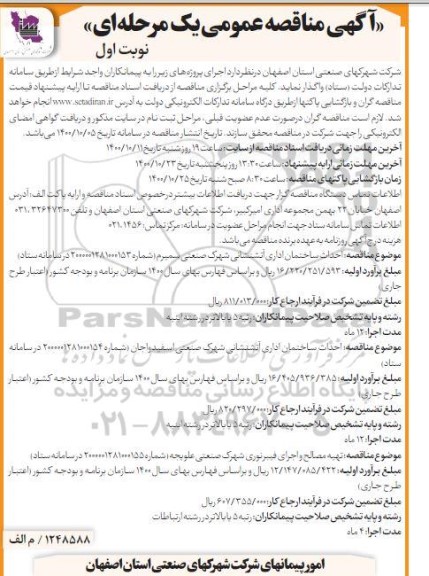 «آگهی مناقصه عمومی یک مرحله‌ای»
نوبت اول
شرکت شهرکهای صنعتی استان اصفهان در نظر دارد اجرای پروژه‌های زیر را به پیمانکاران واجد شرایط از طریق سامانه
تدارکات دولت (ستاد) واگذار نماید. کلیه مراحل برگزاری مناقصه از دریافت اسناد مناقصه تا ارایه پیشنهاد قیمت
مناقصه گران و بازگشایی پاکتها از طریق درگاه سامانه تدارکات الکترونیکی دولت به آدرس www.setadiran.ir انجام خواهد
شد. لازم است مناقصه گران درصورت عدم عضویت قبلی، مراحل ثبت نام در سایت مذکور و دریافت گواهی امضای
الکترونیکی را جهت شرکت در مناقصه محقق سازند. تاریخ انتشار مناقصه در سامانه تاریخ ۱۴۰۰/۱۰/۰۵ می‌باشد.
آخرین مهلت زمانی دریافت اسناد مناقصه از سایت: ساعت ۱۹ روز شنبه تاریخ ۱۴۰۰/۱۰/۱۱
آخرین مهلت زمانی ارایه پیشنهاد: ساعت ۱۳:۳۰ روز پنجشنبه تاریخ ۱۴۰۰/۱۰/۲۳
زمان بازگشایی پاکتهای مناقصه: ساعت ۸:۳۰ صبح شنبه تاریخ ۱۴۰۰/۱۰/۲۵
اطلاعات تماس دستگاه مناقصه گزار جهت دریافت اطلاعات بیشتر درخصوص اسناد مناقصه و ارایه پاکت الف: آدرس
اصفهان خیابان ۲۲ بهمن مجموعه اداری امیرکبیر، شرکت شهرکهای صنعتی استان اصفهان و تلفن ۳۲۶۴۷۳۰۰-۰۳۱
اطلاعات تماس سامانه ستاد جهت انجام مراحل عضویت در سامانه: مرکز تماس: ۱۴۵۶-۰۲۱
هزینه درج آگهی روزنامه به عهده برنده مناقصه می‌باشد.
موضوع مناقصه: احداث ساختمان اداری آتشنشانی شهرک صنعتی سمیرم (شماره ۲۰۰۰۰۰۱۲۸۱۰۰۰۱۵۳ در سامانه ستاد)
مبلغ برآورد اولیه: ۱۶/۲۲۰/۲۵۱/۵۹۳ ریال و براساس فهارس بهای سال ۱۴۰۰ سازمان برنامه و بودجه کشور (اعتبار طرح
جاری)
مبلغ تضمین شرکت در فرآیند ارجاع کار: ۸۱۱/۰۱۳/۰۰۰ ریال
رشته و پایه تشخیص صلاحیت پیمانکاران: رتبه ۵ یا بالاتر در رشته ابنیه
مدت اجرا: ۱۲ ماه
موضوع مناقصه: احداث ساختمان اداری آتشنشانی شهرک صنعتی اسفیدواجان (شماره ۲۰۰۰۰۰۱۲۸۱۰۰۰۱۵۴ در سامانه
ستاد)
مبلغ برآورد اولیه: ۱۶/۴۰۵/۹۳۶/۳۸۵ ریال و براساس فهارس بهای سال ۱۴۰۰ سازمان برنامه و بودجه کشور (اعتبار
طرح جاری)
مبلغ تضمین شرکت در فرآیند ارجاع کار: ۸۲۰/۲۹۷/۰۰۰ ریال
رشته و پایه تشخیص صلاحیت پیمانکاران: رتبه ۵ یا بالاتر در رشته ابنیه
مدت اجرا: ۱۲ ماه
موضوع مناقصه: تهیه مصالح و اجرای فیبرنوری شهرک صنعتی علویجه (شماره ۲۰۰۰۰۰۱۲۸۱۰۰۰۱۵۵ در سامانه ستاد)
مبلغ برآورد اولیه: ۱۲/۱۴۷/۰۸۵/۴۲۲ ریال و براساس فهارس بهای سال ۱۴۰۰ سازمان برنامه و بودجه کشور (اعتبار
طرح جاری)
مبلغ تضمین شرکت در فرآیند ارجاع کار: ۶۰۷/۳۵۵/۰۰۰ ریال
رشته و پایه تشخیص صلاحیت پیمانکاران: رتبه ۵ یا بالاتر در رشته ارتباطات
مدت اجرا: ۴ ماه
۱۲۴۸۵۸۸ / م الف
امور پیمانهای شرکت شهرکهای صنعتی استان اصفهان